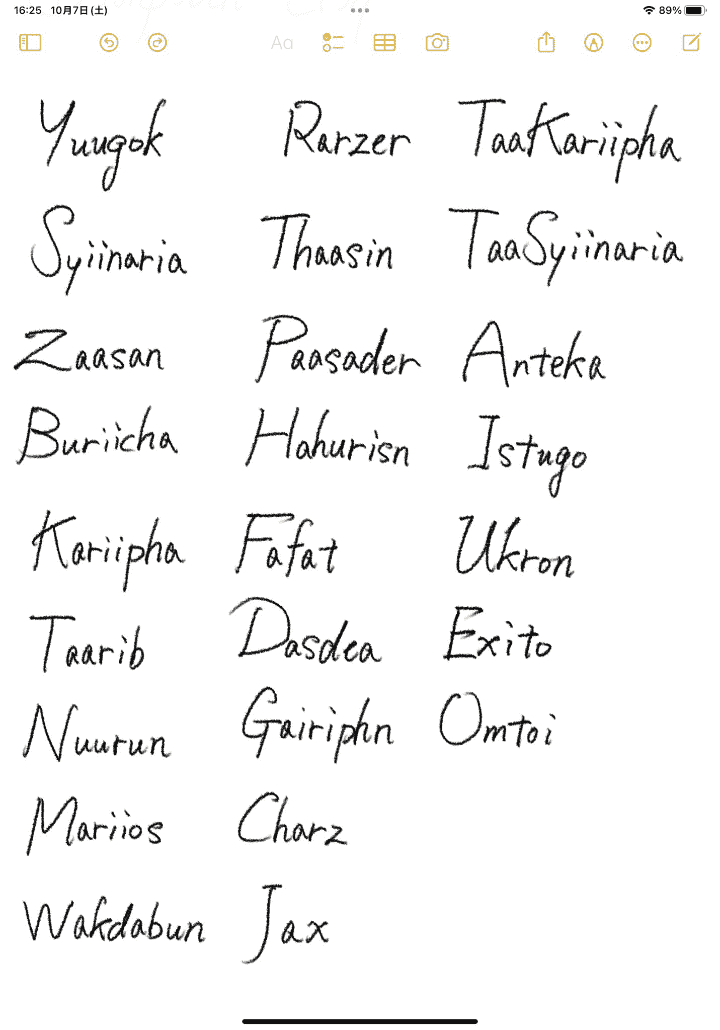 16:25 10月7日(土) 89%
Aa
Yuugok
Syiinaria
Zaasan
Buriicha
Kariipha
Taarib
Nuurun
Mariios
Wakdabun
Rarzer
Thaasin
Paasader
Hahurisn
Fafat
Dasdea
Gairiphn
Charz
Jax
TaaKariipha
TaaSyiinaria
Anteka
Istugo
Ukron
Exito
Omtoi